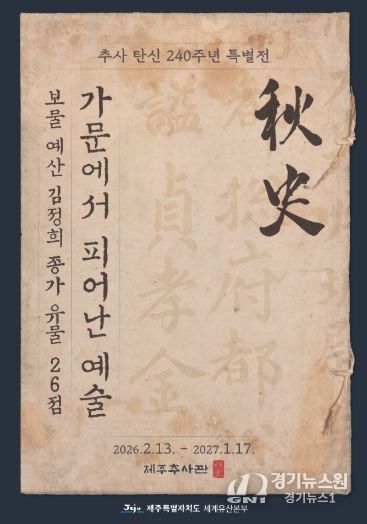 추사 탄신 240주년 특별전
秋史
가문에서 피어난 예술
보물 예산 김정희 종가 유물 26점
諡貞孝金
府都
2026.2.13. - 2027.1.17.
제주추사관
Jeju 제주특별자치도 세계유산본부
경기뉴스원
GN1 경기뉴스1